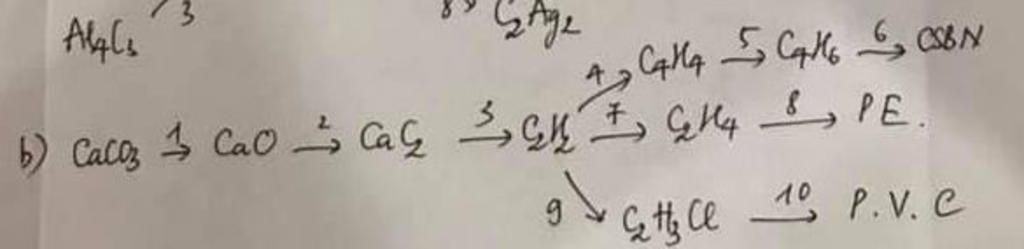 Al4C3 3 8) C2Ag2
4 C4H4 →5 C4H6 →6 CSBN
b) CaCO3 →1 CaO →2 CaC2 →3 C2H2 →7 C2H4 →8 PE.
9 C2H3Cl →10 P.V.C